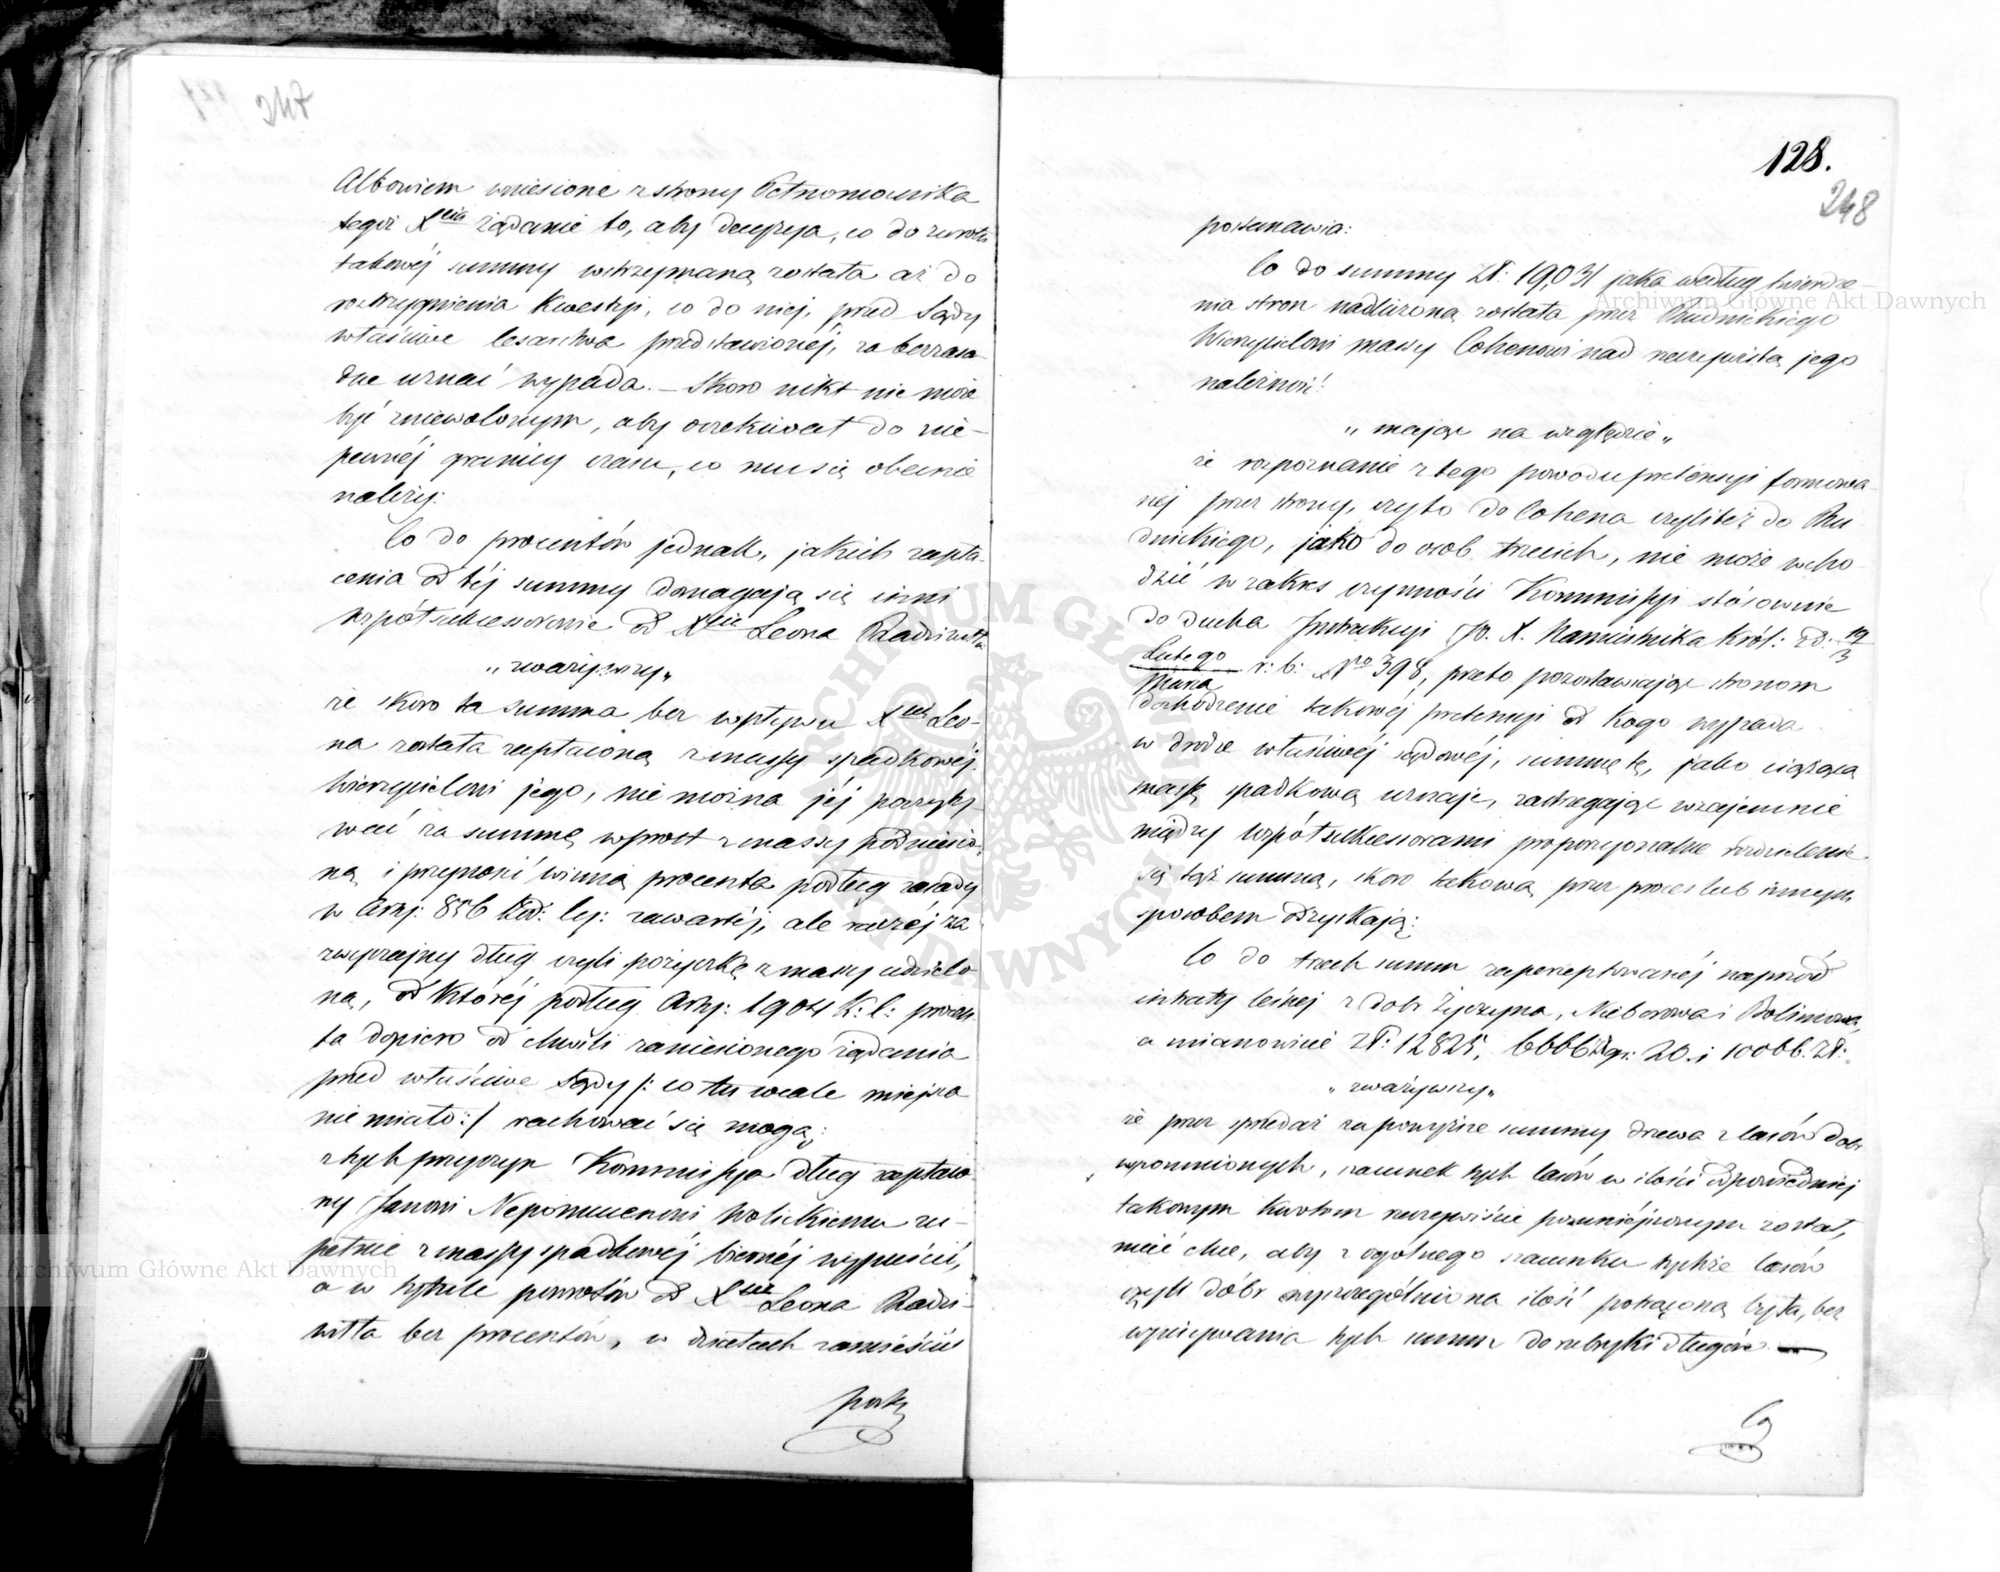 Albowiem wniesione z strony Pełnomocnika
tegoż Xcia żądanie to, aby decyzya, co do zwrotu
takowéj summy wstrzymaną została aż do
rozstrzygnienia kwestyi, co do niej, przed Sądy
właściwe lesarstwa przedstawionéj, za bezzasa-
dne uznać wypada. – Skoro nikt nie może
być zniewolonym, aby oczekiwał do nie-
pewnéj granicy czasu, co mu się obecnie
należy:
Co do procentów jednak, jakich zapła-
cenia od téj summy domagają się inni
współsukcessorowie od Xcia Leona Radziwiłła
„zważywszy„
że skoro ta summa bez wpływu Xcia Leo-
na została zapłaconą z massy spadkowéj
Wierzycielowi jego, nie można jéj poczyty-
wać za summę wprost z massy podniesio-
ną i przynosić winną procenta podług zasady
w Arty: 856 Kod: Cy: zawartéj, ale raczéj za
zwyczajny dług czyli pożyczkę z massy udzielo-
ną, od któréj podług Arty: 1904 K: C: procen-
ta dopiero od chwili zaniesionego żądania
przed właściwe Sądy /: co tu wcale miejsca
nie miało :/ rachować się mogą;
z tych przyczyn Kommissya dług zapłaco-
ny Janowi Nepomucenowi Wolickiemu zu-
pełnie z massy spadkowéj biernéj wypuścić,
a w tytule powrotów od Xcia Leona Radzi-
wiłła bez procentów, w działach zamieścić
posta
128.
248
postanawia:
Co do summy Zł: 19,031 jaka według twierdze-
nia stron nadliczoną została przez Rudnickiego
Wierzycielowi massy Cohenowi nad rzeczywistą jego
należność!
„mając na względzie„
że rozpoznanie z tego powodu pretensyi formowa-
néj przez strony, czyto do Cohena czyliteż do Ru-
dnickiego, jako do osob trzecich, nie może wcho-
dzić w zakres czynności Kommissyi stósownie
do ducha Instrukcyi JO. X. Namiestnika Król: z d: 19/3
Lutego/Marca r: b: No 398, przeto pozostawiając stronom
dochodzenie takowéj pretensyi od kogo wypada
w drodze właściwéj sądowéj, summę tę, jako ciążącą
massę spadkową uznaje, zastrzegając wzajemnie
między Współsukcessorami proporcyonalne rozdzielenie
się tąż summą, skoro takową przez proces lub innym
sposobem odzyskają:
Co do trzech summ zaperceptowanéj naprzód
intraty leśnej z dóbr Życzyna, Nieborowa i Bolimowa,
a mianowicie Zł: 12825, 6666 gr: 20. i 10066. Zł:
„zważywszy„
że przez sprzedaż za powyższe summy drzewa z lasów dóbr
wspomnionych, szacunek tych lasów w ilości odpowiedniej
takowym kwotom rzeczywiście pomniejszonym został,
mieć chce, aby z ogólnego szacunku tychże lasów
czyli dóbr wyszczególniona ilość potrąconą była, bez
wpisywania tych summ do rubryki długów.
Co